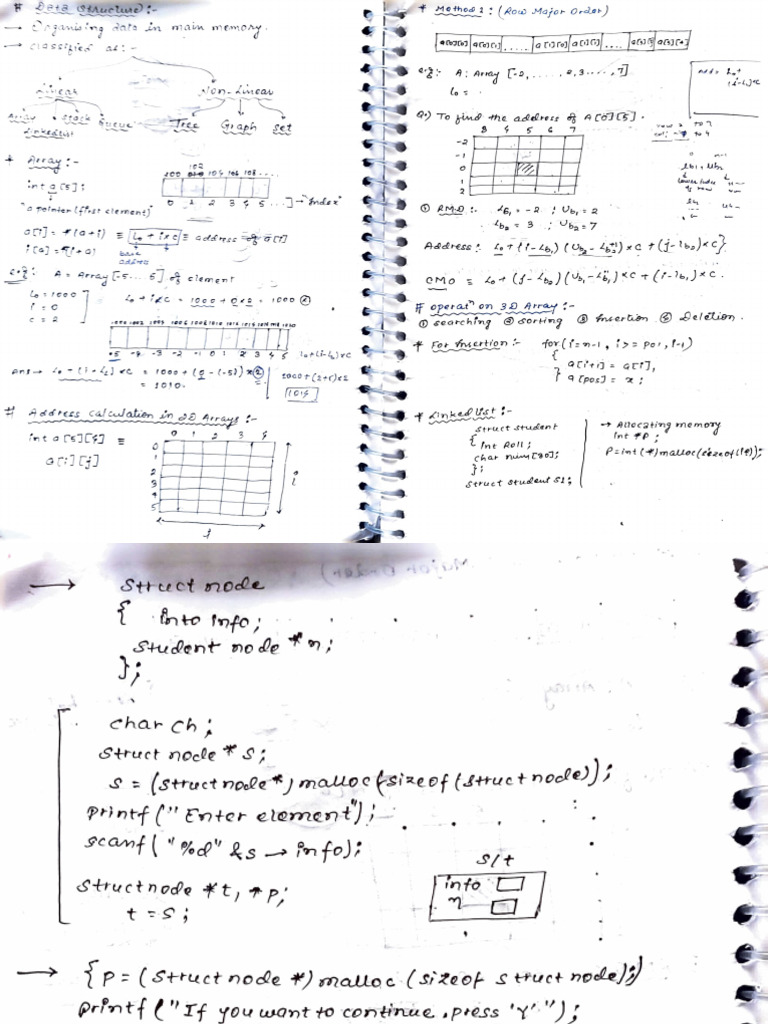 # Data Structure :-
→ Organising data in main memory.
→ classified as :-
Linear Non-Linear
Array Stack Queue Tree Graph set
Linkedlist
* Array :-
102
int a[5];
0 1 2 3 4 5 ... → "Index"
"a pointer (first element)
a[i] = *(a+i) ≡ L0 + i×c ≡ address of a[i]
i[a] = *(i+a) base address
e.g: A = Array [-5 ... 5] of element
L0 = 1000
i = 0
c = 2
L0 + i×c = 1000 + 0×2 = 1000
-5 -4 -3 -2 -1 0 1 2 3 4 5
= 1010.
# Address calculation in 2D Arrays :-
int a[5][4] ≡
a[i][j]
0 1 2 3 4
0
1
2
3
4
5
i
j
* Method 1 : (Row Major Order)
a[0][0] a[0][1] ..... a[1][0] a[1][1] ....
e.g: A: Array [-2, ..... 2, 3 ...., 7]
L0 = .
Q.) To find the address of A[0][5].
3 4 5 6 7
-2
-1
0
1
2
① RMO :- Lb1 = -2 ; Ub1 = 2
Lb2 = 3 ; Ub2 = 7
Address: L0 + (i-Lb1) (Ub2-Lb2+1)×C + (j-lb2)×C}
CMO = L0 + (j-Lb2) (Ub1-L+1b1)×C + (i-lb1)×C.
# operatn on 2D Array :-
① searching ② sorting ③ Insertion ④ Deletion.
* For Insertion :- for(i=n-1, i>= pos, i-1)
{
a[i+1] = a[i],
} a[pos] = x;
* Linked list :-
struct student
{ int Roll;
char num[80];
};
struct student S1;
→ Allocating memory
int *P ;
P=int(*)malloc(sizeof(i*));
→ struct node
{ into info;
student node *n;
};
char ch ;
struct node * s;
s = (struct node*) malloc(sizeof(struct node));
printf ("Enter element");
scanf( "%d" &s → info);
struct node *t, *p;
t = s ;
s/t
info
n
→ {p = (struct node *) malloc (sizeof struct node);)
printf ("If you want to continue .press 'Y' ");